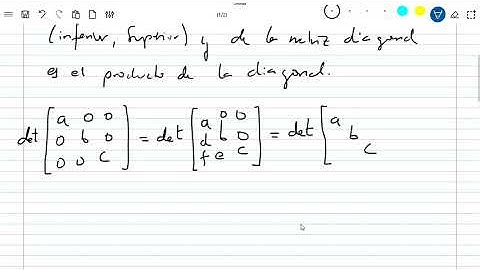 (inferior, superior) y de la matriz diagonal
es el producto de la diagonal.
det [a 0 0; 0 b 0; 0 0 c] = det [a 0 0; d b 0; f e c] = det [a b c